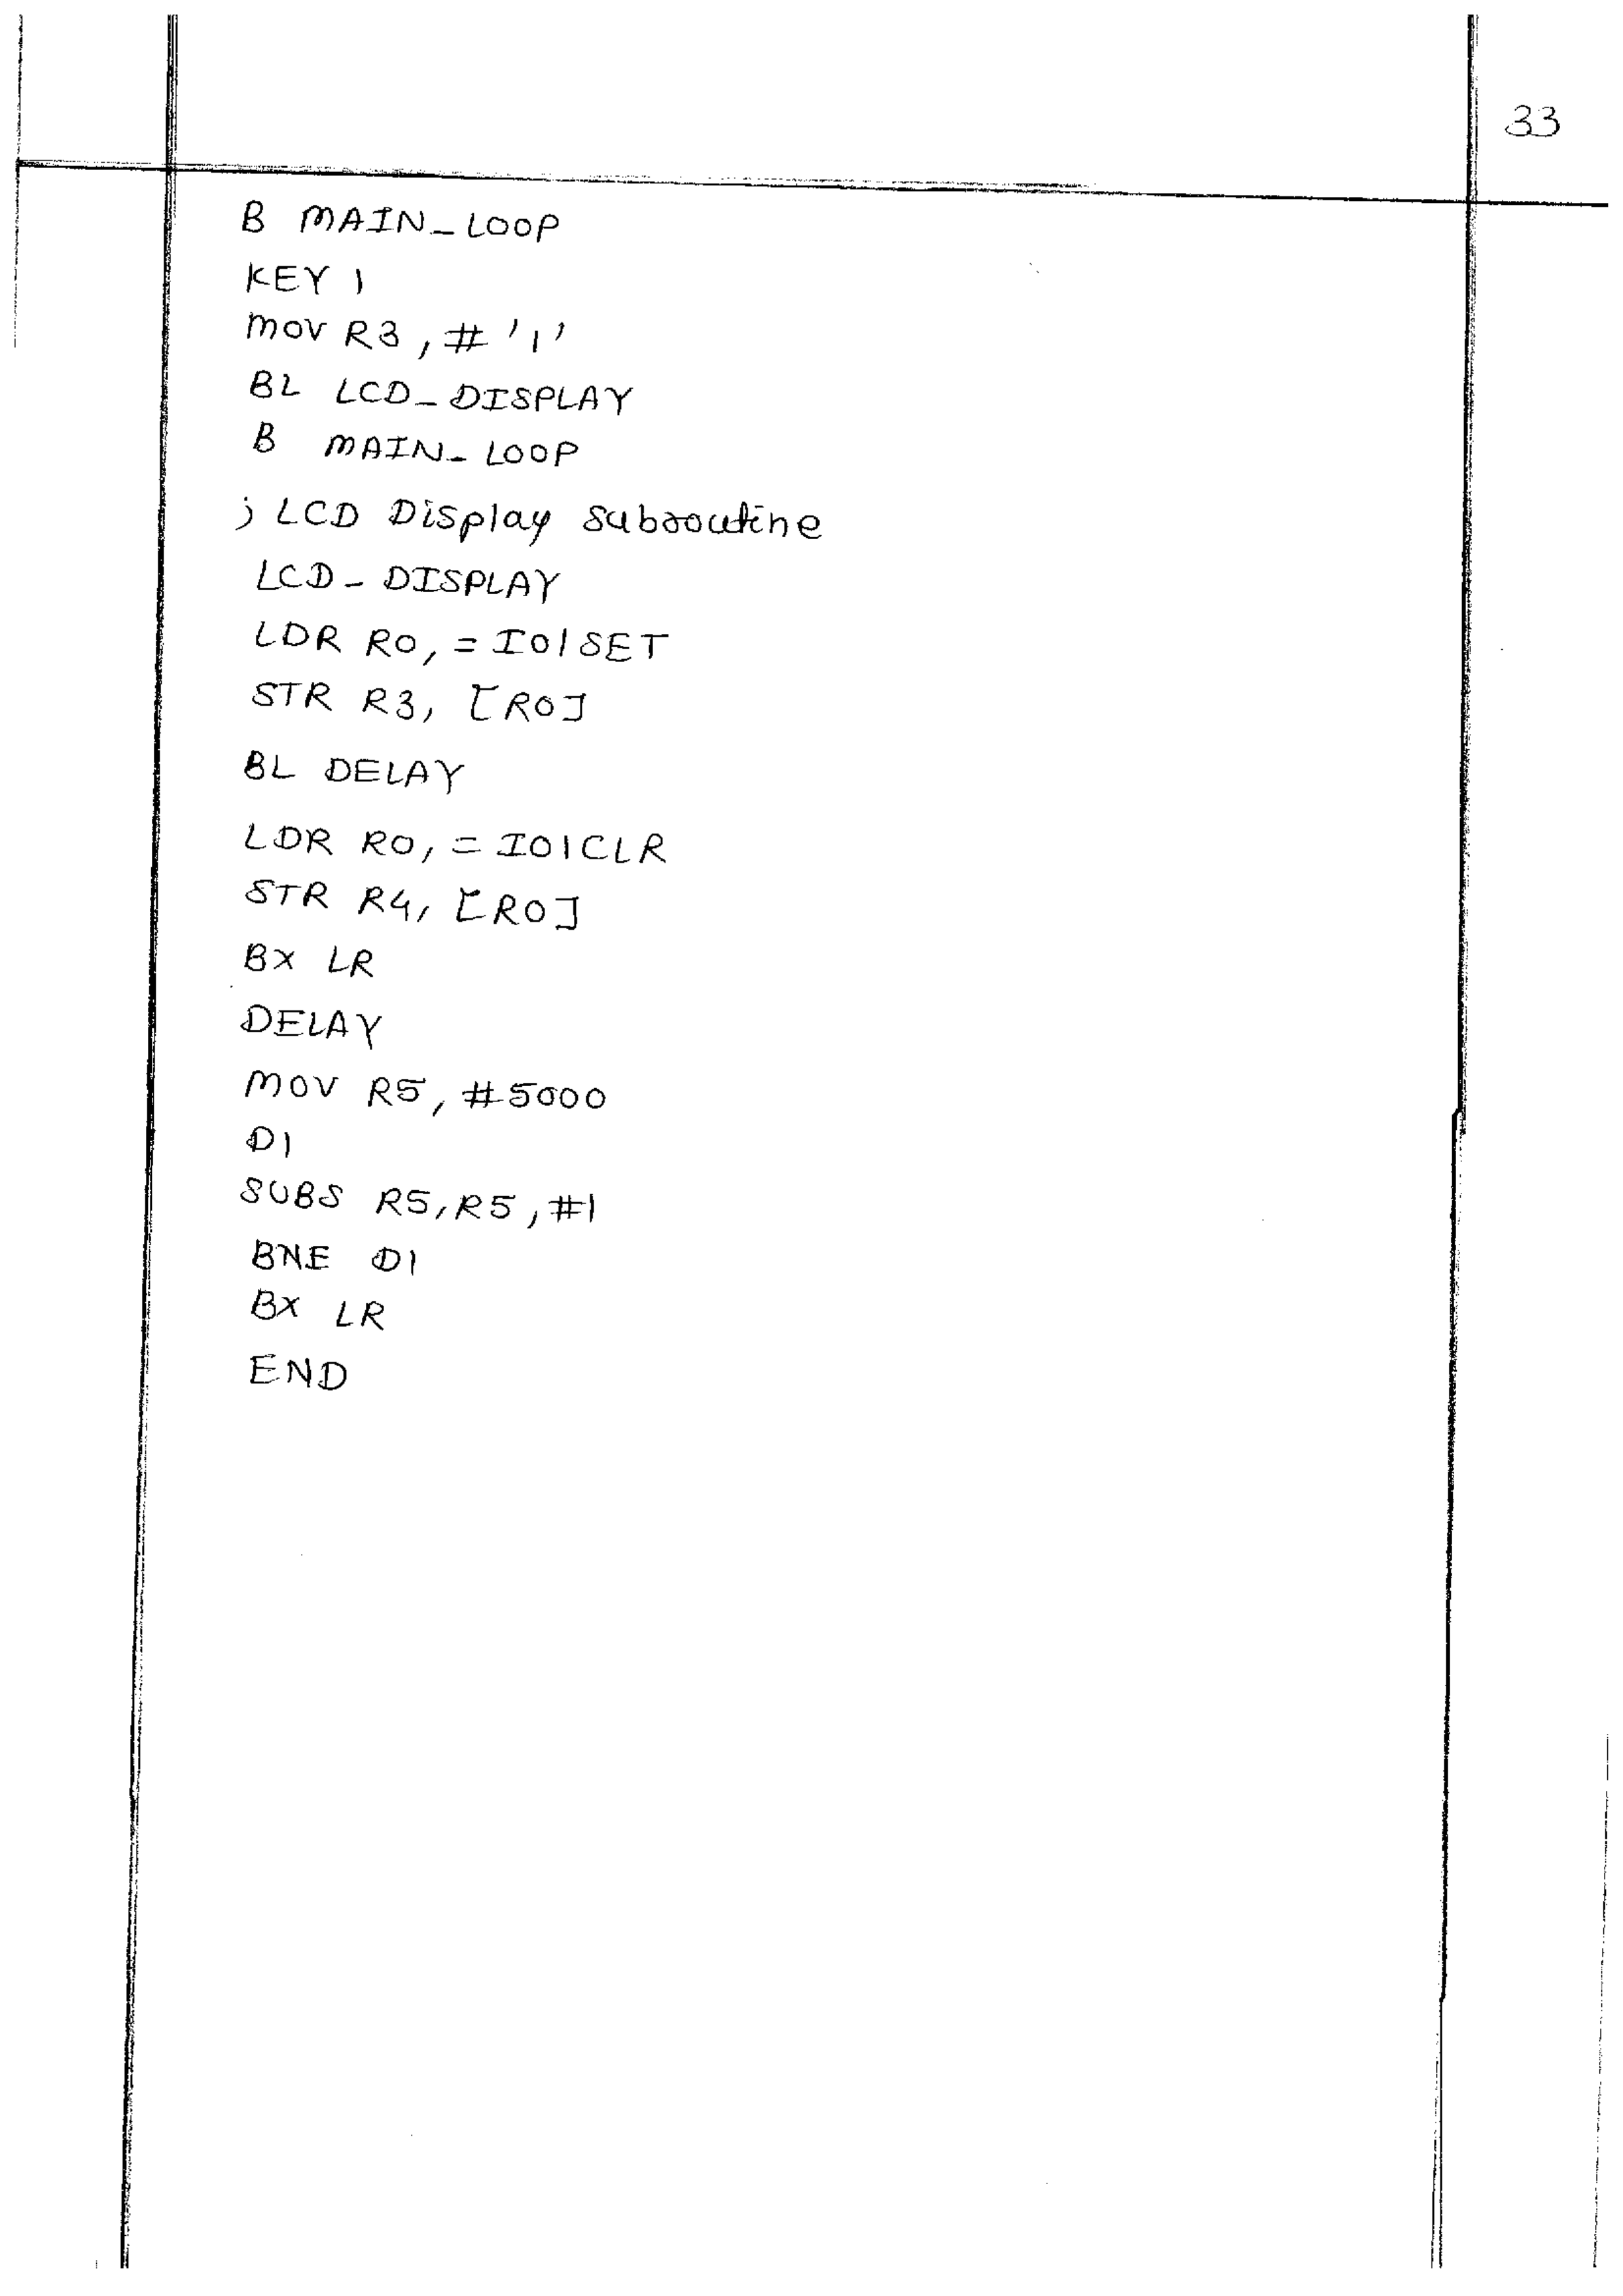 33
B MAIN_LOOP
KEY 1
MOV R3, # '1'
BL LCD_DISPLAY
B MAIN_LOOP
; LCD Display subroutine
LCD_DISPLAY
LDR R0, = IO1SET
STR R3, [R0]
BL DELAY
LDR R0, = IO1CLR
STR R4, [R0]
BX LR
DELAY
MOV R5, #5000
D1
SUBS R5, R5, #1
BNE D1
BX LR
END